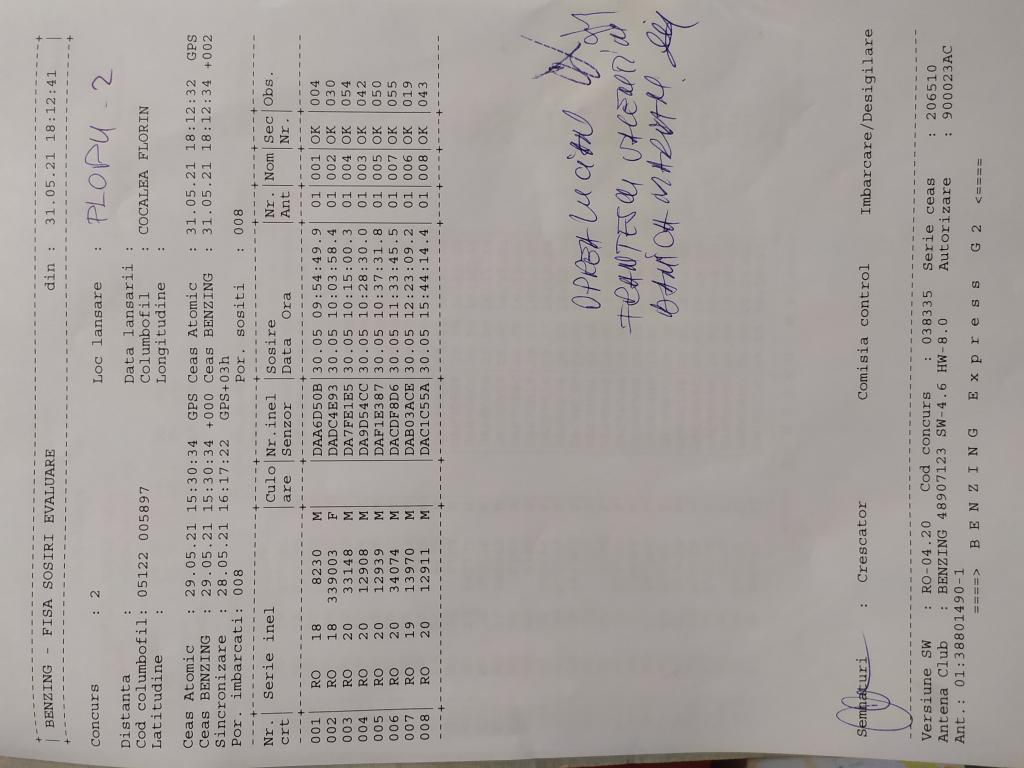 BENZING - FISA SOSIRI EVALUARE din : 31.05.21 18:12:41
Concurs : 2 Loc lansare : PLOPU - 2
Distanta : Data lansarii :
Cod columbofil: 05122 005897 Columbofil : COCALEA FLORIN
Latitudine : Longitudine :
Ceas Atomic : 29.05.21 15:30:34 GPS Ceas Atomic : 31.05.21 18:12:32 GPS
Ceas BENZING : 29.05.21 15:30:34 +000 Ceas BENZING : 31.05.21 18:12:34 +002
Sincronizare : 28.05.21 16:17:22 GPS+03h
Por. imbarcati: 008 Por. sositi : 008
Nr. | Serie inel |Culo|Nr.inel |Sosire |Nr. |Nom|Sec|Obs.
crt | |are |Senzor |Data Ora |Ant | |Nr.|
001 | RO 18 8230 M | |DAA6D50B|30.05 09:54:49.9| 01 |001|OK |004
002 | RO 18 339003 F | |DADC4E93|30.05 10:03:58.4| 01 |002|OK |030
003 | RO 20 33148 M | |DA7FE1E5|30.05 10:15:00.3| 01 |004|OK |054
004 | RO 20 12908 M | |DA9D54CC|30.05 10:28:30.0| 01 |003|OK |042
005 | RO 20 12939 M | |DAF1E387|30.05 10:37:31.8| 01 |005|OK |050
006 | RO 20 34074 M | |DACDF8D6|30.05 11:33:45.5| 01 |007|OK |055
007 | RO 19 13970 M | |DAB03ACE|30.05 12:23:09.2| 01 |006|OK |019
008 | RO 20 12911 M | |DAC1C55A|30.05 15:44:14.4| 01 |008|OK |043
OPREA LUCIAN
MARIAN
Semnaturi : Crescator Comisia control Imbarcare/Desigilare
Versiune SW : RO-04.20 Cod concurs : 038335 Serie ceas : 206510
Antena Club : BENZING 48907123 SW-4.6 HW-8.0 Autorizare : 900023AC
Ant.: 01:38801490-1
====> B E N Z I N G E x p r e s s G 2 <====